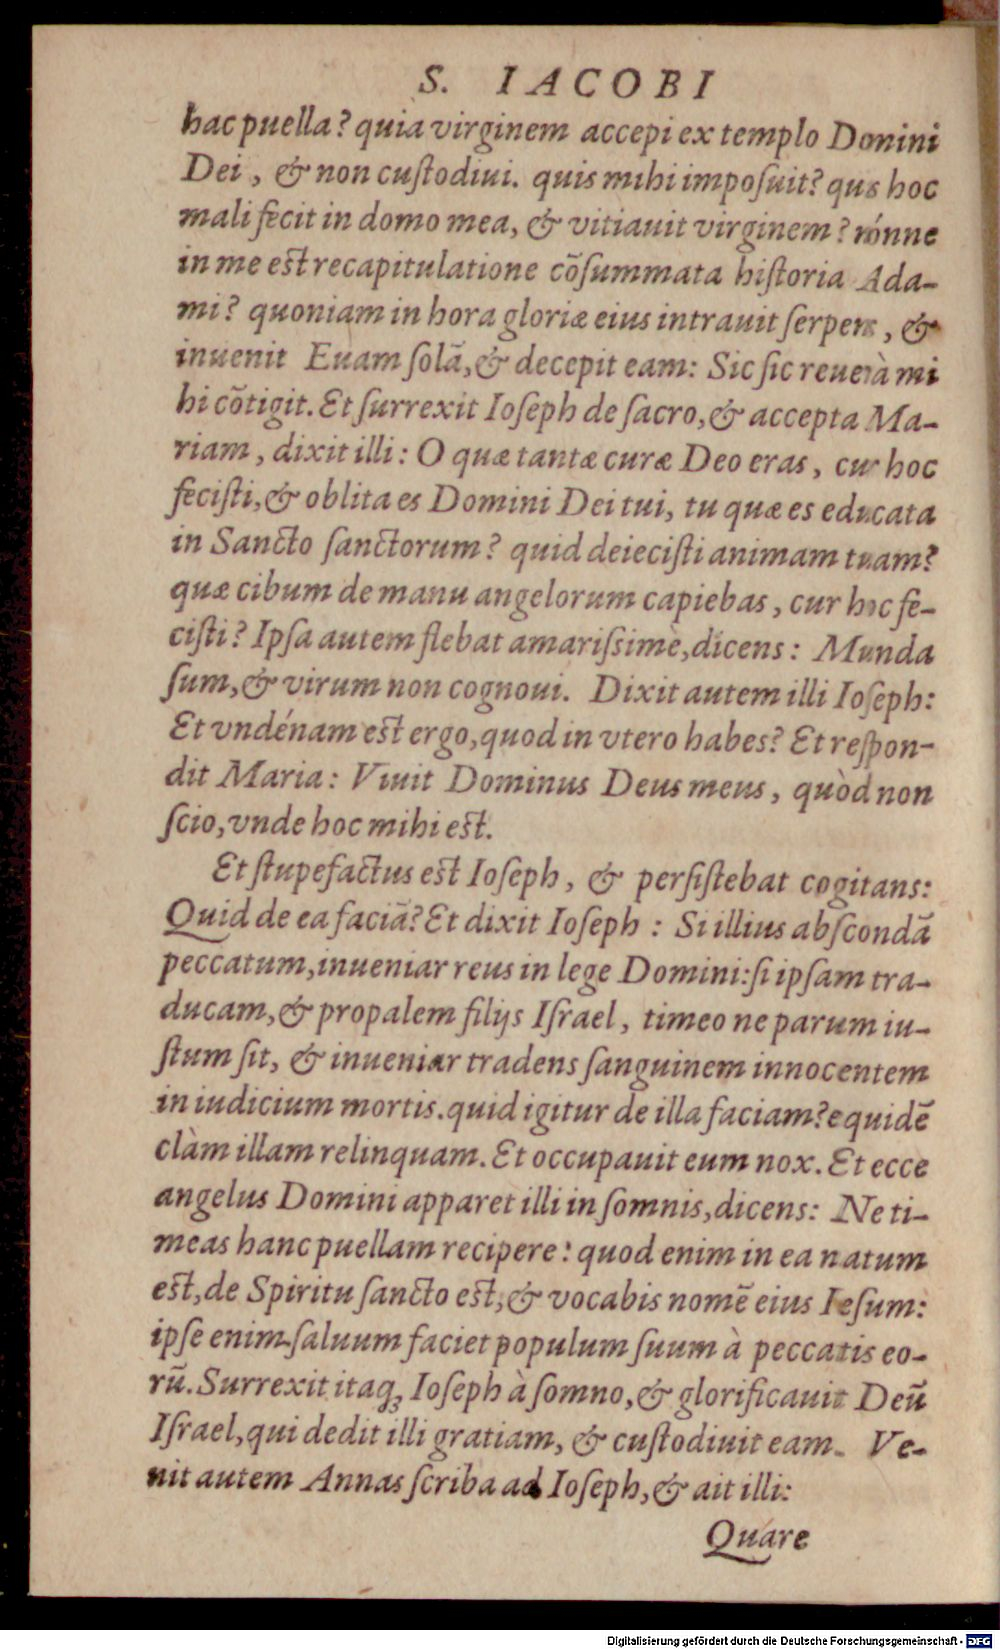 S. IACOBI
hac puella? quia virginem accepi ex templo Domini
Dei, & non cuſtodiui. quis mihi impoſuit? quis hoc
mali fecit in domo mea, & vitiauit virginem? nónne
in me est recapitulatione cõſummata hiſtoria Ada-
mi? quoniam in hora gloriæ eius intrauit ſerpens, &
inuenit Euam ſolã, & decepit eam: Sic ſic reuerà mi
hi cõtigit. Et ſurrexit Ioſeph de ſacro, & accepta Ma-
riam, dixit illi: O quæ tantæ curæ Deo eras, cur hoc
feciſti, & oblita es Domini Dei tui, tu quæ es educata
in Sancto ſanctorum? quid deieciſti animam tuam?
quæ cibum de manu angelorum capiebas, cur hoc fe-
ciſti? Ipſa autem flebat amariſsimè, dicens: Munda
ſum, & virum non cognoui. Dixit autem illi Ioſeph:
Et vndénam est ergo, quod in vtero habes? Et reſpon-
dit Maria: Viuit Dominus Deus meus, quòd non
ſcio, vnde hoc mihi est.
Et ſtupefactus est Ioſeph, & perſiſtebat cogitans:
Quid de ea faciã? Et dixit Ioſeph: Si illius abſcondã
peccatum, inueniar reus in lege Domini: ſi ipſam tra-
ducam, & propalem filijs Iſrael, timeo ne parum iu-
ſtum ſit, & inueniar tradens ſanguinem innocentem
in iudicium mortis. quid igitur de illa faciam? equidẽ
clàm illam relinquam. Et occupauit eum nox. Et ecce
angelus Domini apparet illi in ſomnis, dicens: Ne ti-
meas hanc puellam recipere: quod enim in ea natum
est, de Spiritu ſancto est, & vocabis nomẽ eius Ieſum:
ipſe enim ſaluum faciet populum ſuum à peccatis eo-
rũ. Surrexit itaq; Ioſeph à ſomno, & glorificauit Deũ
Iſrael, qui dedit illi gratiam, & cuſtodiuit eam. Ve-
nit autem Annas ſcriba ad Ioſeph, & ait illi:
Quare
Digitalisierung gefördert durch die Deutsche Forschungsgemeinschaft - DFG